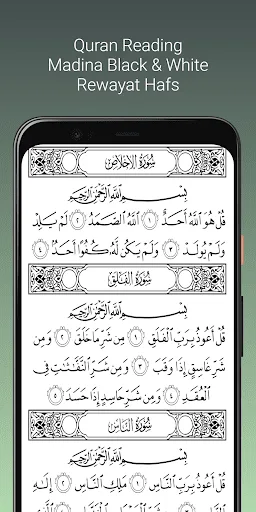 Quran Reading
Madina Black & White
Rewayat Hafs
سُورَةُ الإِخْلَاصِ
بِسْمِ ٱللَّهِ ٱلرَّحْمَٰنِ ٱلرَّحِيمِ
قُلْ هُوَ ٱللَّهُ أَحَدٌ ١ ٱللَّهُ ٱلصَّمَدُ ٢ لَمْ يَلِدْ
وَلَمْ يُولَدْ ٣ وَلَمْ يَكُن لَّهُۥ كُفُوًا أَحَدٌۢ ٤
سُورَةُ الفَلَقِ
بِسْمِ ٱللَّهِ ٱلرَّحْمَٰنِ ٱلرَّحِيمِ
قُلْ أَعُوذُ بِرَبِّ ٱلْفَلَقِ ١ مِن شَرِّ مَا خَلَقَ ٢ وَمِن
شَرِّ غَاسِقٍ إِذَا وَقَبَ ٣ وَمِن شَرِّ ٱلنَّفَّٰثَٰتِ فِي
ٱلْعُقَدِ ٤ وَمِن شَرِّ حَاسِدٍ إِذَا حَسَدَ ٥
سُورَةُ النَّاسِ
بِسْمِ ٱللَّهِ ٱلرَّحْمَٰنِ ٱلرَّحِيمِ
قُلْ أَعُوذُ بِرَبِّ ٱلنَّاسِ ١ مَلِكِ ٱلنَّاسِ ٢ إِلَٰهِ